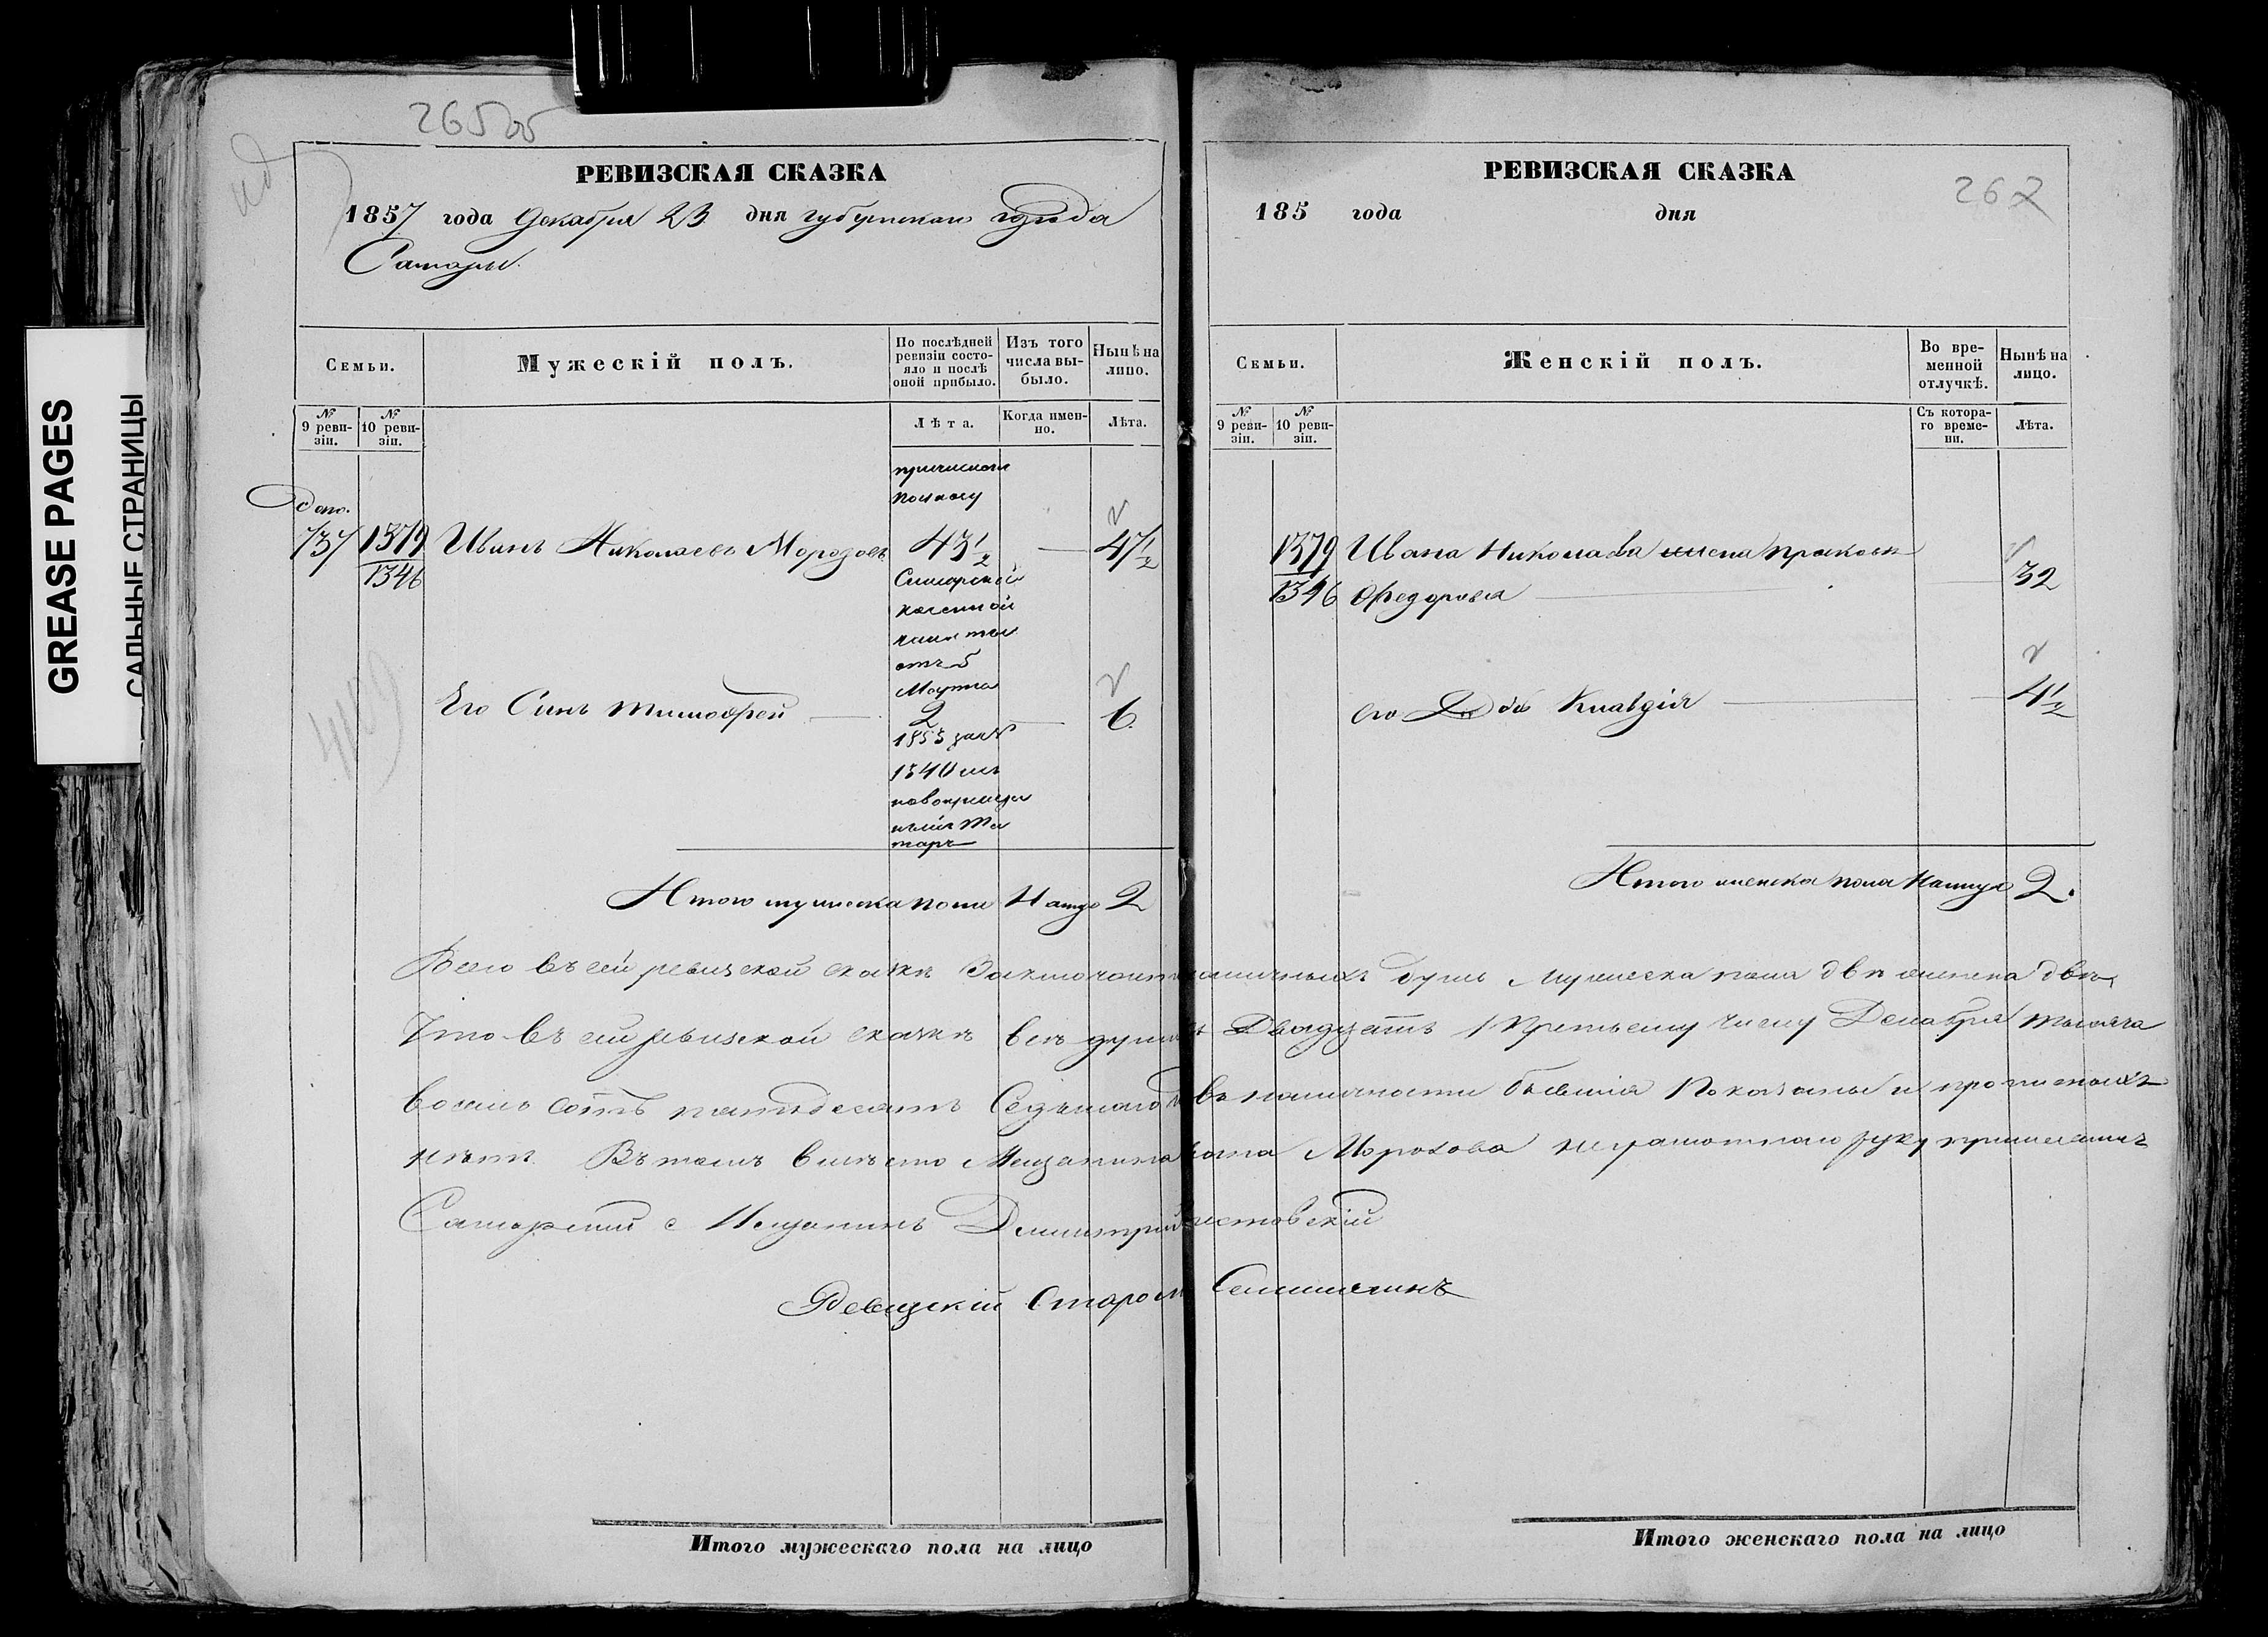 265об
РЕВИЗСКАЯ СКАЗКА
1857 года Декабря 23 дня губернскаго города
Самары.
Семьи.
Мужескій полъ.
По послѣдней ревизіи состояло и послѣ оной прибыло.
Изъ того числа выбыло.
Нынѣ на лицо.
№ 9 ревизіи.
№ 10 ревизіи.
Лѣта.
Когда именно.
Лѣта.
причислен
по указу
Допо.
737 1379 Иванъ Николаевъ Морозовъ 43½ — 47½
1346
Самарской
казенной
палаты
отъ 5
Марта
Его Сынъ Тимофей — 2 — 6
1853 за №
1340 изъ
новокреще
ныхъ та
таръ
Итого мужеска пола На лицо 2
РЕВИЗСКАЯ СКАЗКА
267
185 года дня
Семьи.
Женскій полъ.
Во временной отлучкѣ.
Нынѣ на лицо.
№ 9 ревизіи.
№ 10 ревизіи.
Съ котораго времени.
Лѣта.
1379 Ивана Николаева жена Прасковья
1346 Федорова — 32
его Дочь Клавдія — 4½
Итого женска пола На лицо 2.
Всего въ сей ревизской сказке Заключается наличныхъ душъ Мужеска пола две женска две,
Что въ сей ревизской сказке все души къ Двадцать Третьему числу Декабря тысяча
восемь сотъ пятьдесятъ Седьмого въ наличности бывшія Показаны и прописныхъ
нетъ. Въ томъ вместо Мещанина Ивана Морозова неграмотнаго руку приложилъ
Самарский Мещанинъ Дмитрий
Ревизскій Староста
Итого мужескаго пола на лицо
Итого женскаго пола на лицо
GREASE PAGES
САЛЬНЫЕ СТРАНИЦЫ